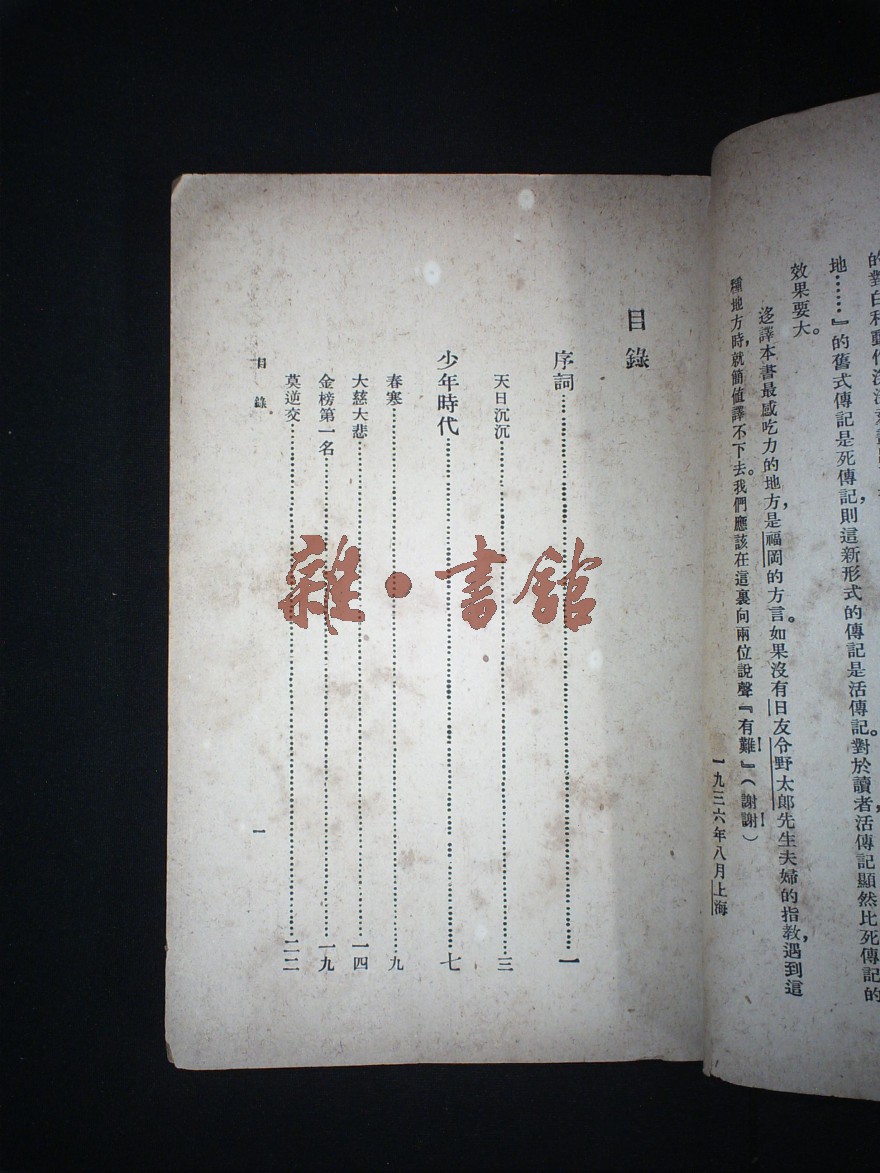 的對白和動作深深
地……』的舊式傳記是死傳記,則這新形式的傳記是活傳記。對於讀者,活傳記顯然比死傳記的
效果要大。
迻譯本書最感吃力的地方,是福岡的方言。如果沒有日友令野太郎先生夫婦的指教,遇到這
種地方時,就簡値譯不下去。我們應該在這裏向兩位說聲『有難!』(謝謝!)
一九三六年八月上海
目錄
序詞……一
天日沉沉……三
少年時代……七
春寒……九
大慈大悲……一四
金榜第一名……一九
莫逆交……二二
目錄
一
雜·書館